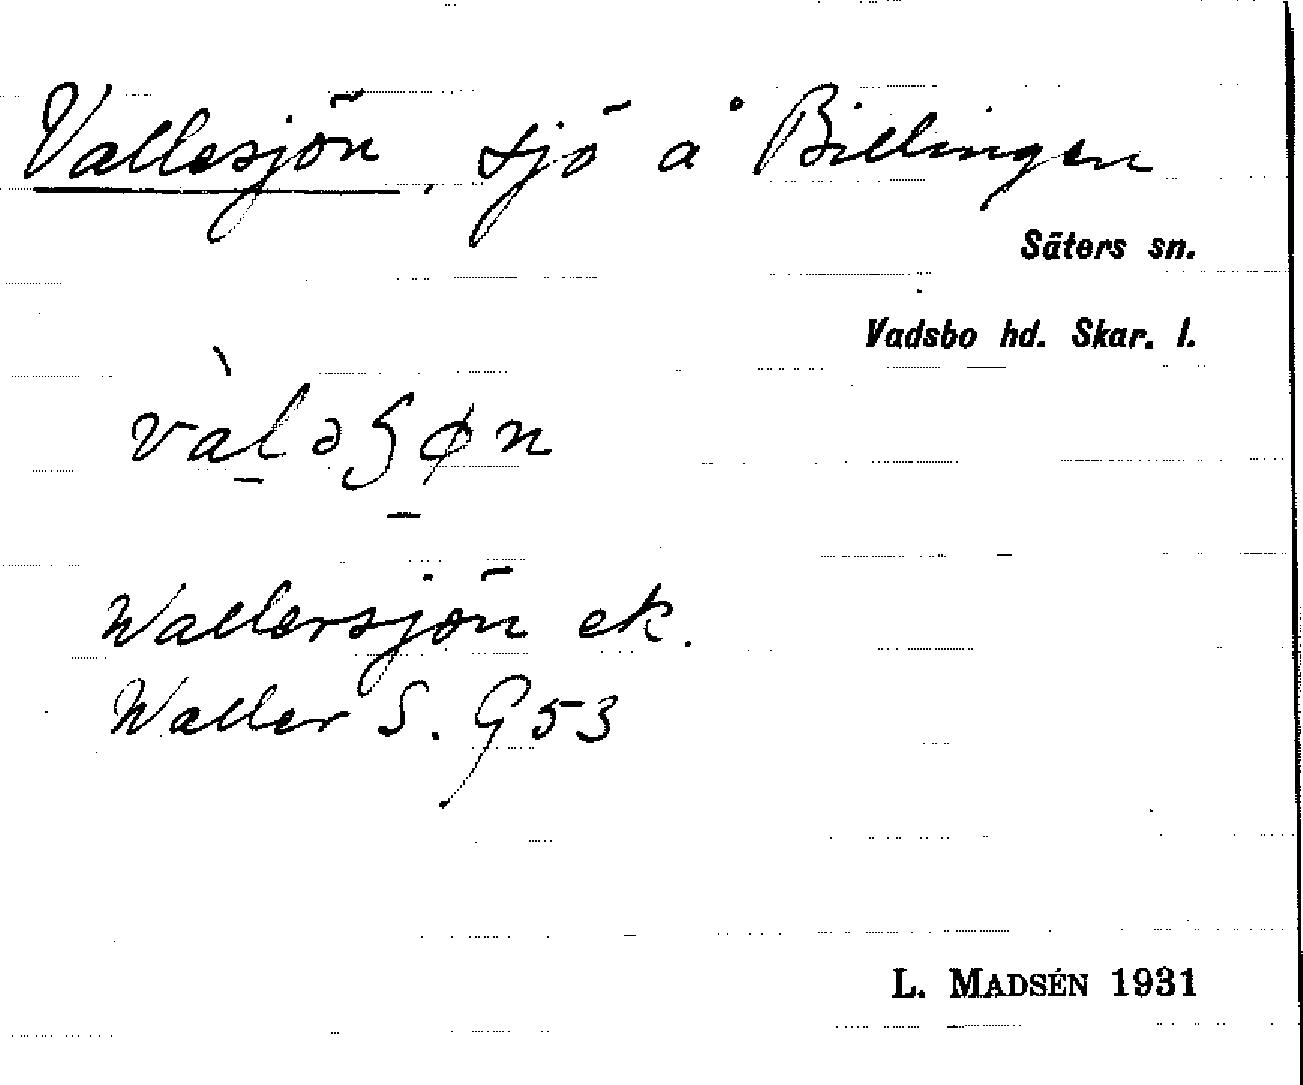 Vallesjön, sjö å Billingen
Säters sn.
Vadsbo hd. Skar. l.
vàl̠əʃ̠øn
Wallersjön ek.
Waller S. G53
L. MADSÉN 1931